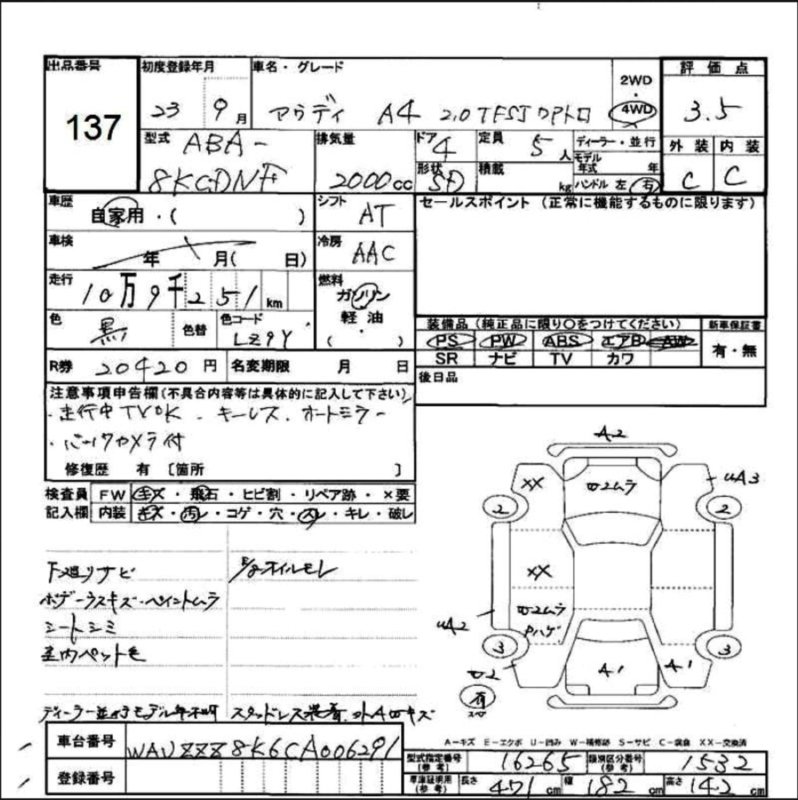 出品番号 初度登録年月 車名・グレード 2WD 評価点
137 23 9月 アウディ A4 2.0 TFSI クワトロ 4WD 3.5
型式 排気量 ドア 4 定員 5人 ディーラー・並行 外装 内装
ABA- 8KCDNF 2000cc 形状 SD 積載 kg モデル年式 年 ハンドル 左 右 C C
車歴 自家用・( ) シフト AT セールスポイント (正常に機能するものに限ります)
車検 年 月( 日) 冷房 AAC
走行 10万9千251km 燃料 ガソリン
色 黒 色替 色コード LZ9Y 軽油 ( ・ )
装備品 (純正品に限り○をつけてください) 新車保証書
PS PW ABS エアB AW 有・無
SR ナビ TV カワ
R券 20420円 名変期限 月 日 後日品
注意事項申告欄 (不具合内容等は具体的に記入して下さい)
・走行中TVOK ・キーレス ・オートミラー
・バックカメラ付
修復歴 有 [箇所 ]
検査員 FW キズ・飛石・ヒビ割・リペア跡・×要
記入欄 内装 キズ・汚レ・コゲ・穴・スレ・キレ・破レ
下廻りサビ
E/gオイルモレ
ボデーウスキズ・ペイントムラ
シートシミ
室内ペット毛
ディーラー並行モデル年不明 スタッドレス装着
A2
XX ロ2ムラ uA3
2 2
XX
uA2 ロ2ムラ Pハゲ
3 3
ロ2 A1 A1
有
A-キズ E-エクボ U-凹み W-補修跡 S-サビ C-腐食 XX-交換済
車台番号 WAUZZZ8K6CA006291
型式指定番号(参考) 16265 類別区分番号(参考) 1532
登録番号 車庫証明用(参考) 長さ 471cm 幅 182cm 高さ 142cm